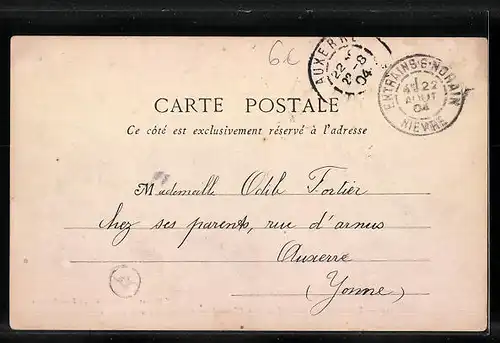 6c
AUXERRE
22 - 8
04
ENTRAINS-S-NOHAIN
22
AOUT
04
NIEVRE
CARTE POSTALE
Ce côté est exclusivement réservé à l'adresse
Mademoiselle Odile Fortier
chez ses parents, rue d'
Auxerre
(Yonne)